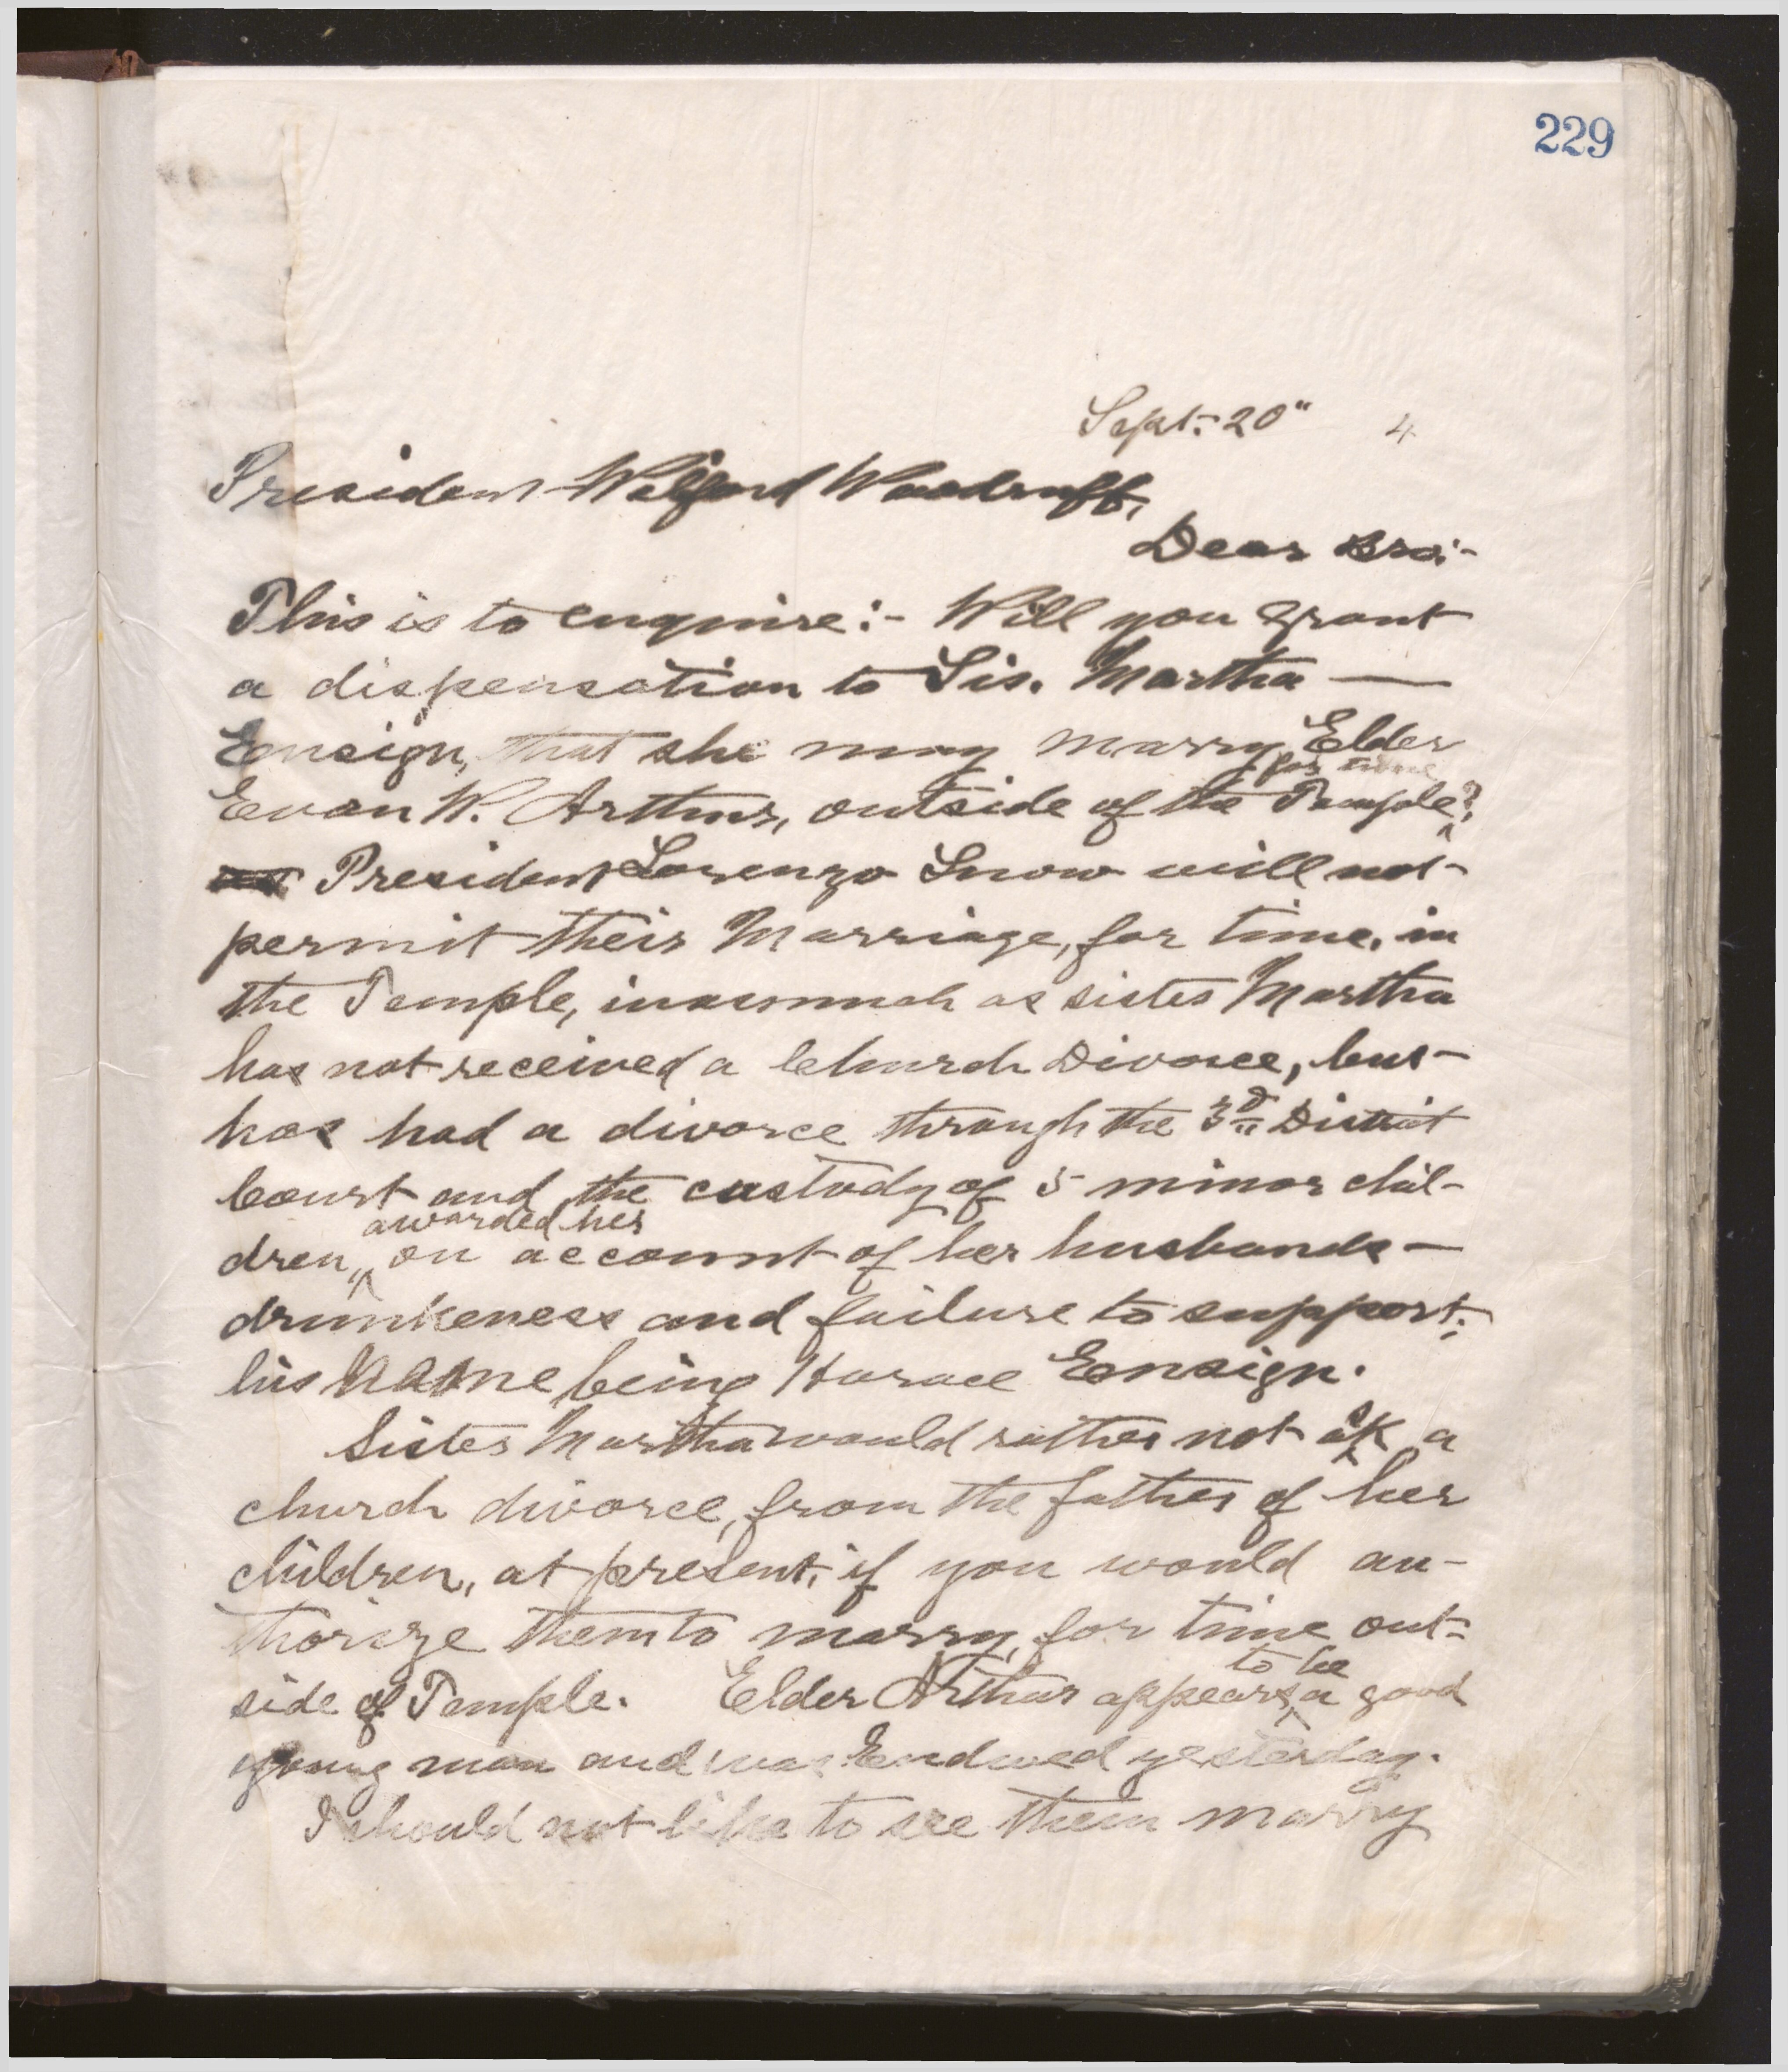 229
Sept. 20" 4
President Wilford Woodruff,
Dear Bro:-
This is to enquire:- Will you grant
a dispensation to Sis. Martha —
Ensign, that she may marry Elder
for time
Evan W. Arthur, outside of the Temple?
President Lorenzo Snow will not
permit their Marriage, for time, in
the Temple, inasmuch as sister Martha
has not received a Church Divorce, but
has had a divorce through the 3d District
Court and the custody of 5 minor chil-
awarded her
dren, on account of her husbands —
drunkeness and failure to support;
his name being Horace Ensign.
Sister Martha would rather not ask a
church divorce, from the father of her
children, at present, if you would au-
thorize them to marry, for time out-
to be
side of Temple. Elder Arthur appears a good
young man and was Endwed yesterday.
I should not like to see them marry